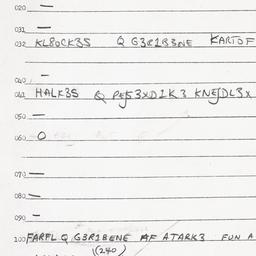 020 —
031 —
032 KL8OCK3S Q G3R1B3NE KARTOF
040 —
041 HALK3S Q PEJ3XD1K3 KNEJDL3X
050 —
060 O
070 —
080 —
090 —
100 FARFL Q G3R1BENE AF ATARK3 FUN A
(240)